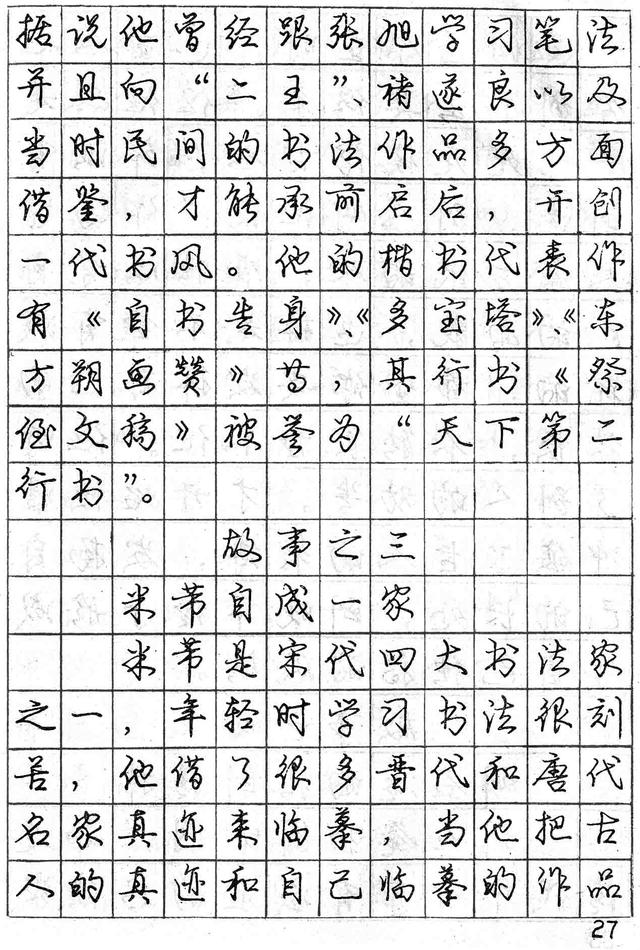 据说他曾经跟张旭学习笔法
并且向“二王”、褚遂良以及
当时民间的书法作品多方面
借鉴，才能承前启后，开创
一代书风。他的楷书代表作
有《自书告身》、《多宝塔》、《东
方朔画赞》等，其行书《祭
侄文稿》被誉为“天下第二
行书”。
故事之三
米芾自成一家
米芾是宋代四大书法家
之一，年轻时学习书法很刻
苦，他借了很多晋代和唐代
名家真迹来临摹，当他把古
人的真迹和自己临摹的作品
27